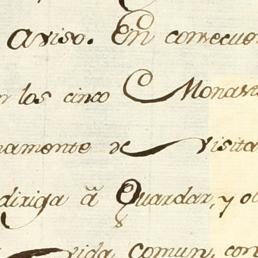 aviso. En consecuen
los cinco Monas
amente de visita
dirija â Guardar, y o
vida comun, con